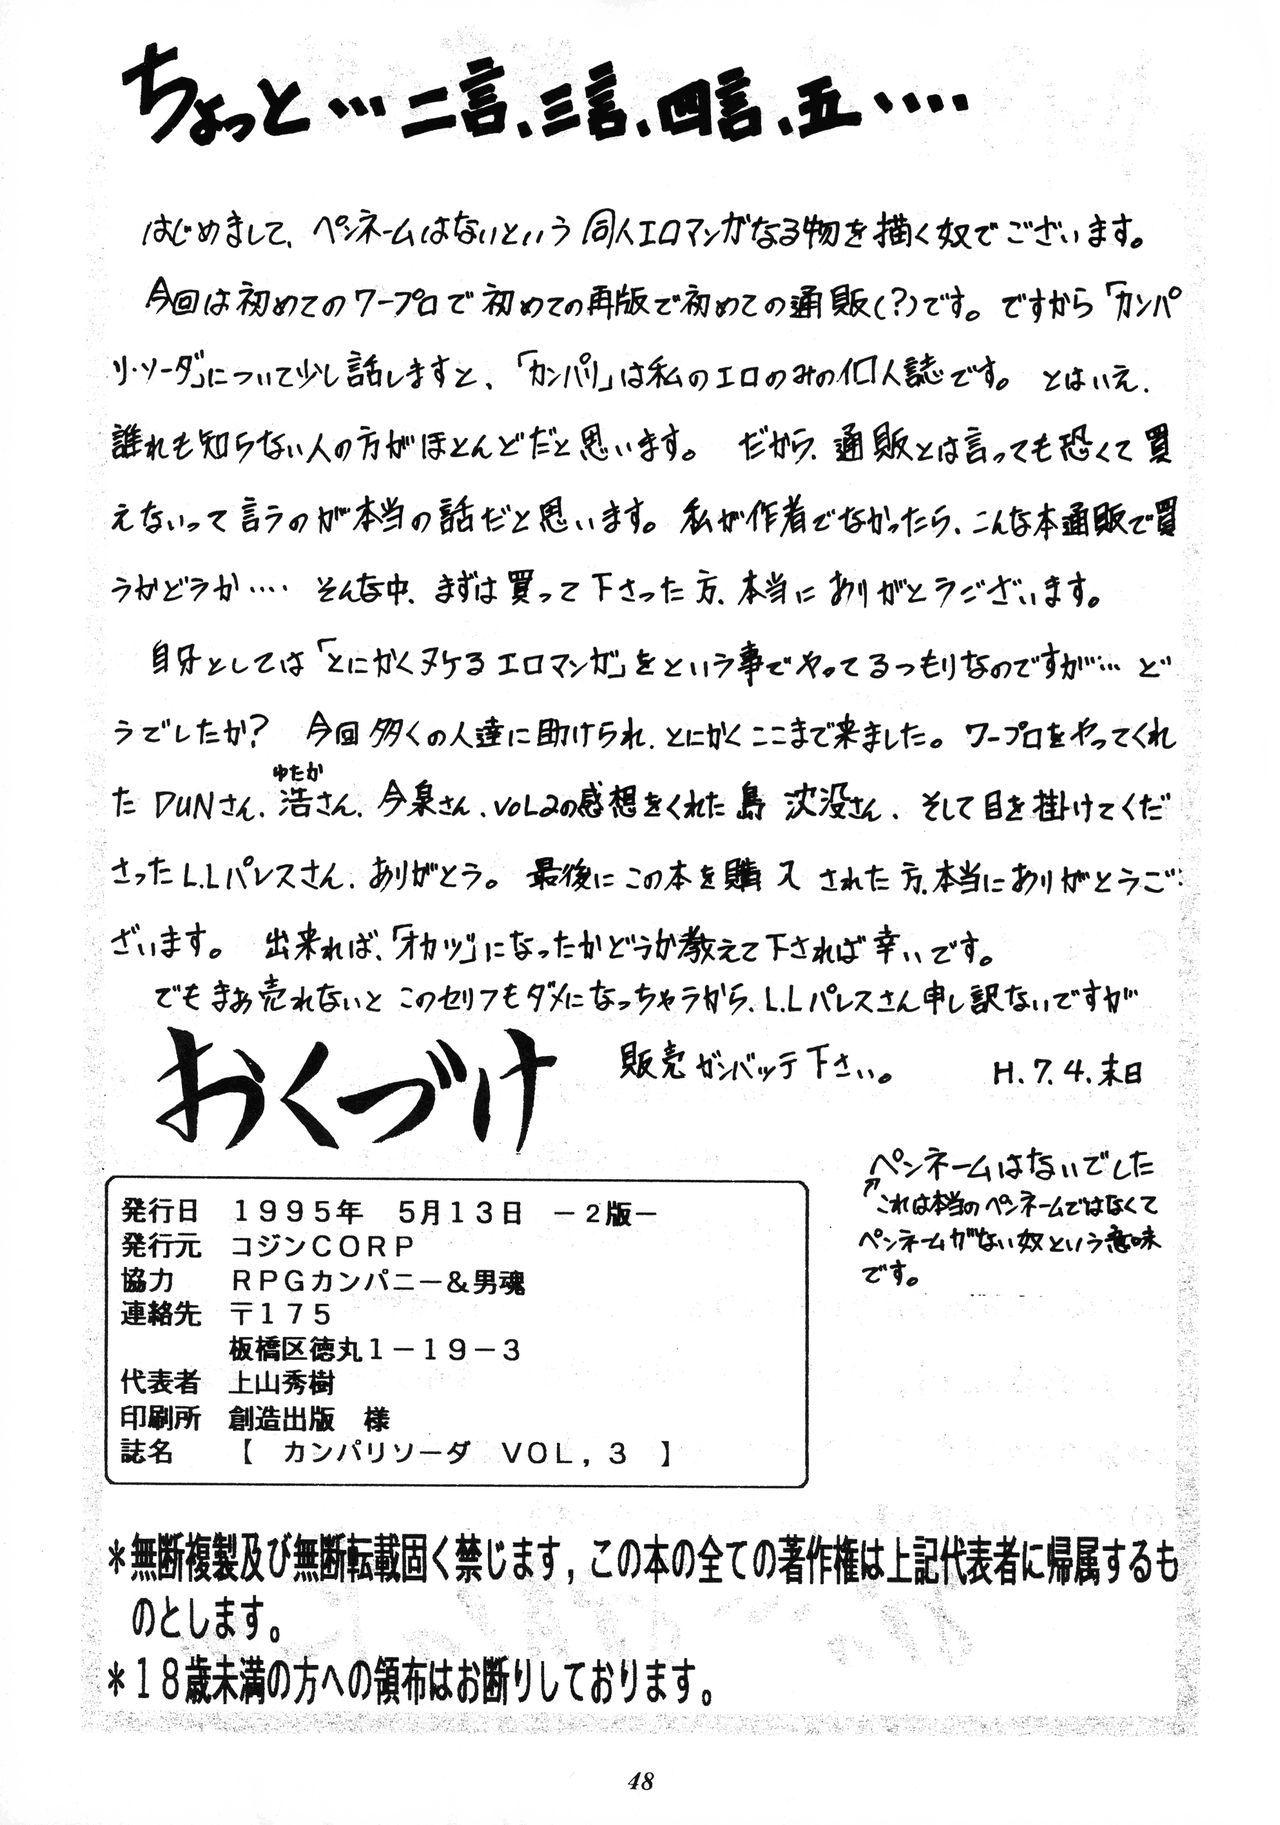 ちょっと…二言、三言、四言、五‥‥
はじめまして、ペンネームはないという同人エロマンガなる物を描く奴でございます。
今回は初めてのワープロで初めての再版で初めての通販(?)です。ですから「カンパ
リ・ソーダ」について少し話しますと、「カンパリ」は私のエロのみの個人誌です。とはいえ、
誰れも知らない人の方がほとんどだと思います。だから、通販とは言っても恐くて買
えないって言うのが本当の話だと思います。私が作者でなかったら、こんな本通販で買
うかどうか‥‥そんな中、まずは買って下さった方、本当にありがとうございます。
自分としては「とにかくヌケるエロマンガ」をという事でやってるつもりなのですが…ど
うでしたか?今回多くの人達に助けられ、とにかくここまで来ました。ワープロをやってくれ
ゆたか
たDUNさん、浩さん、今泉さん、VOL2の感想をくれた島 沈没さん、そして目を掛けてくだ
さったL.Lパレスさん、ありがとう。最後にこの本を購入された方、本当にありがとうご
ざいます。出来れば、「オカツ」になったかどうか教えて下されば幸いです。
でもまぁ売れないとこのセリフもダメになっちゃうから、L.Lパレスさん申し訳ないですが
販売ガンバッテ下さい。 H.7.4.末日
おくづけ
ペンネームはないでした
↗これは本当のペンネームではなくて
ペンネームがない奴という意味
です。
発行日 1995年 5月13日 −2版−
発行元 コジンCORP
協力 RPGカンパニー&男魂
連絡先 〒175
板橋区徳丸1−19−3
代表者 上山秀樹
印刷所 創造出版 様
誌名 【 カンパリソーダ VOL,3 】
*無断複製及び無断転載固く禁じます,この本の全ての著作権は上記代表者に帰属するも
のとします。
*18歳未満の方への領布はお断りしております。
48